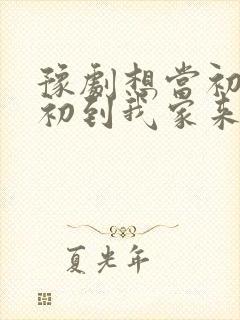 豫劇想當初
初到我家来
夏光年